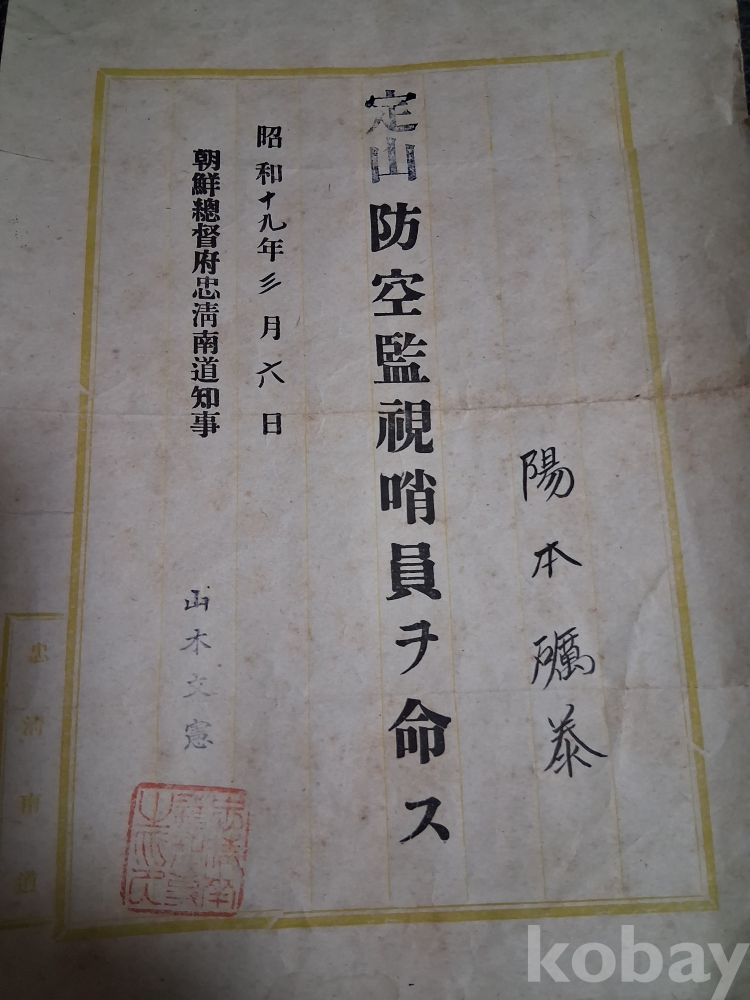 陽本礪泰
定山防空監視哨員ヲ命ス
昭和十九年三月六日
朝鮮總督府忠淸南道知事
山木文憲
忠淸南道
kobay